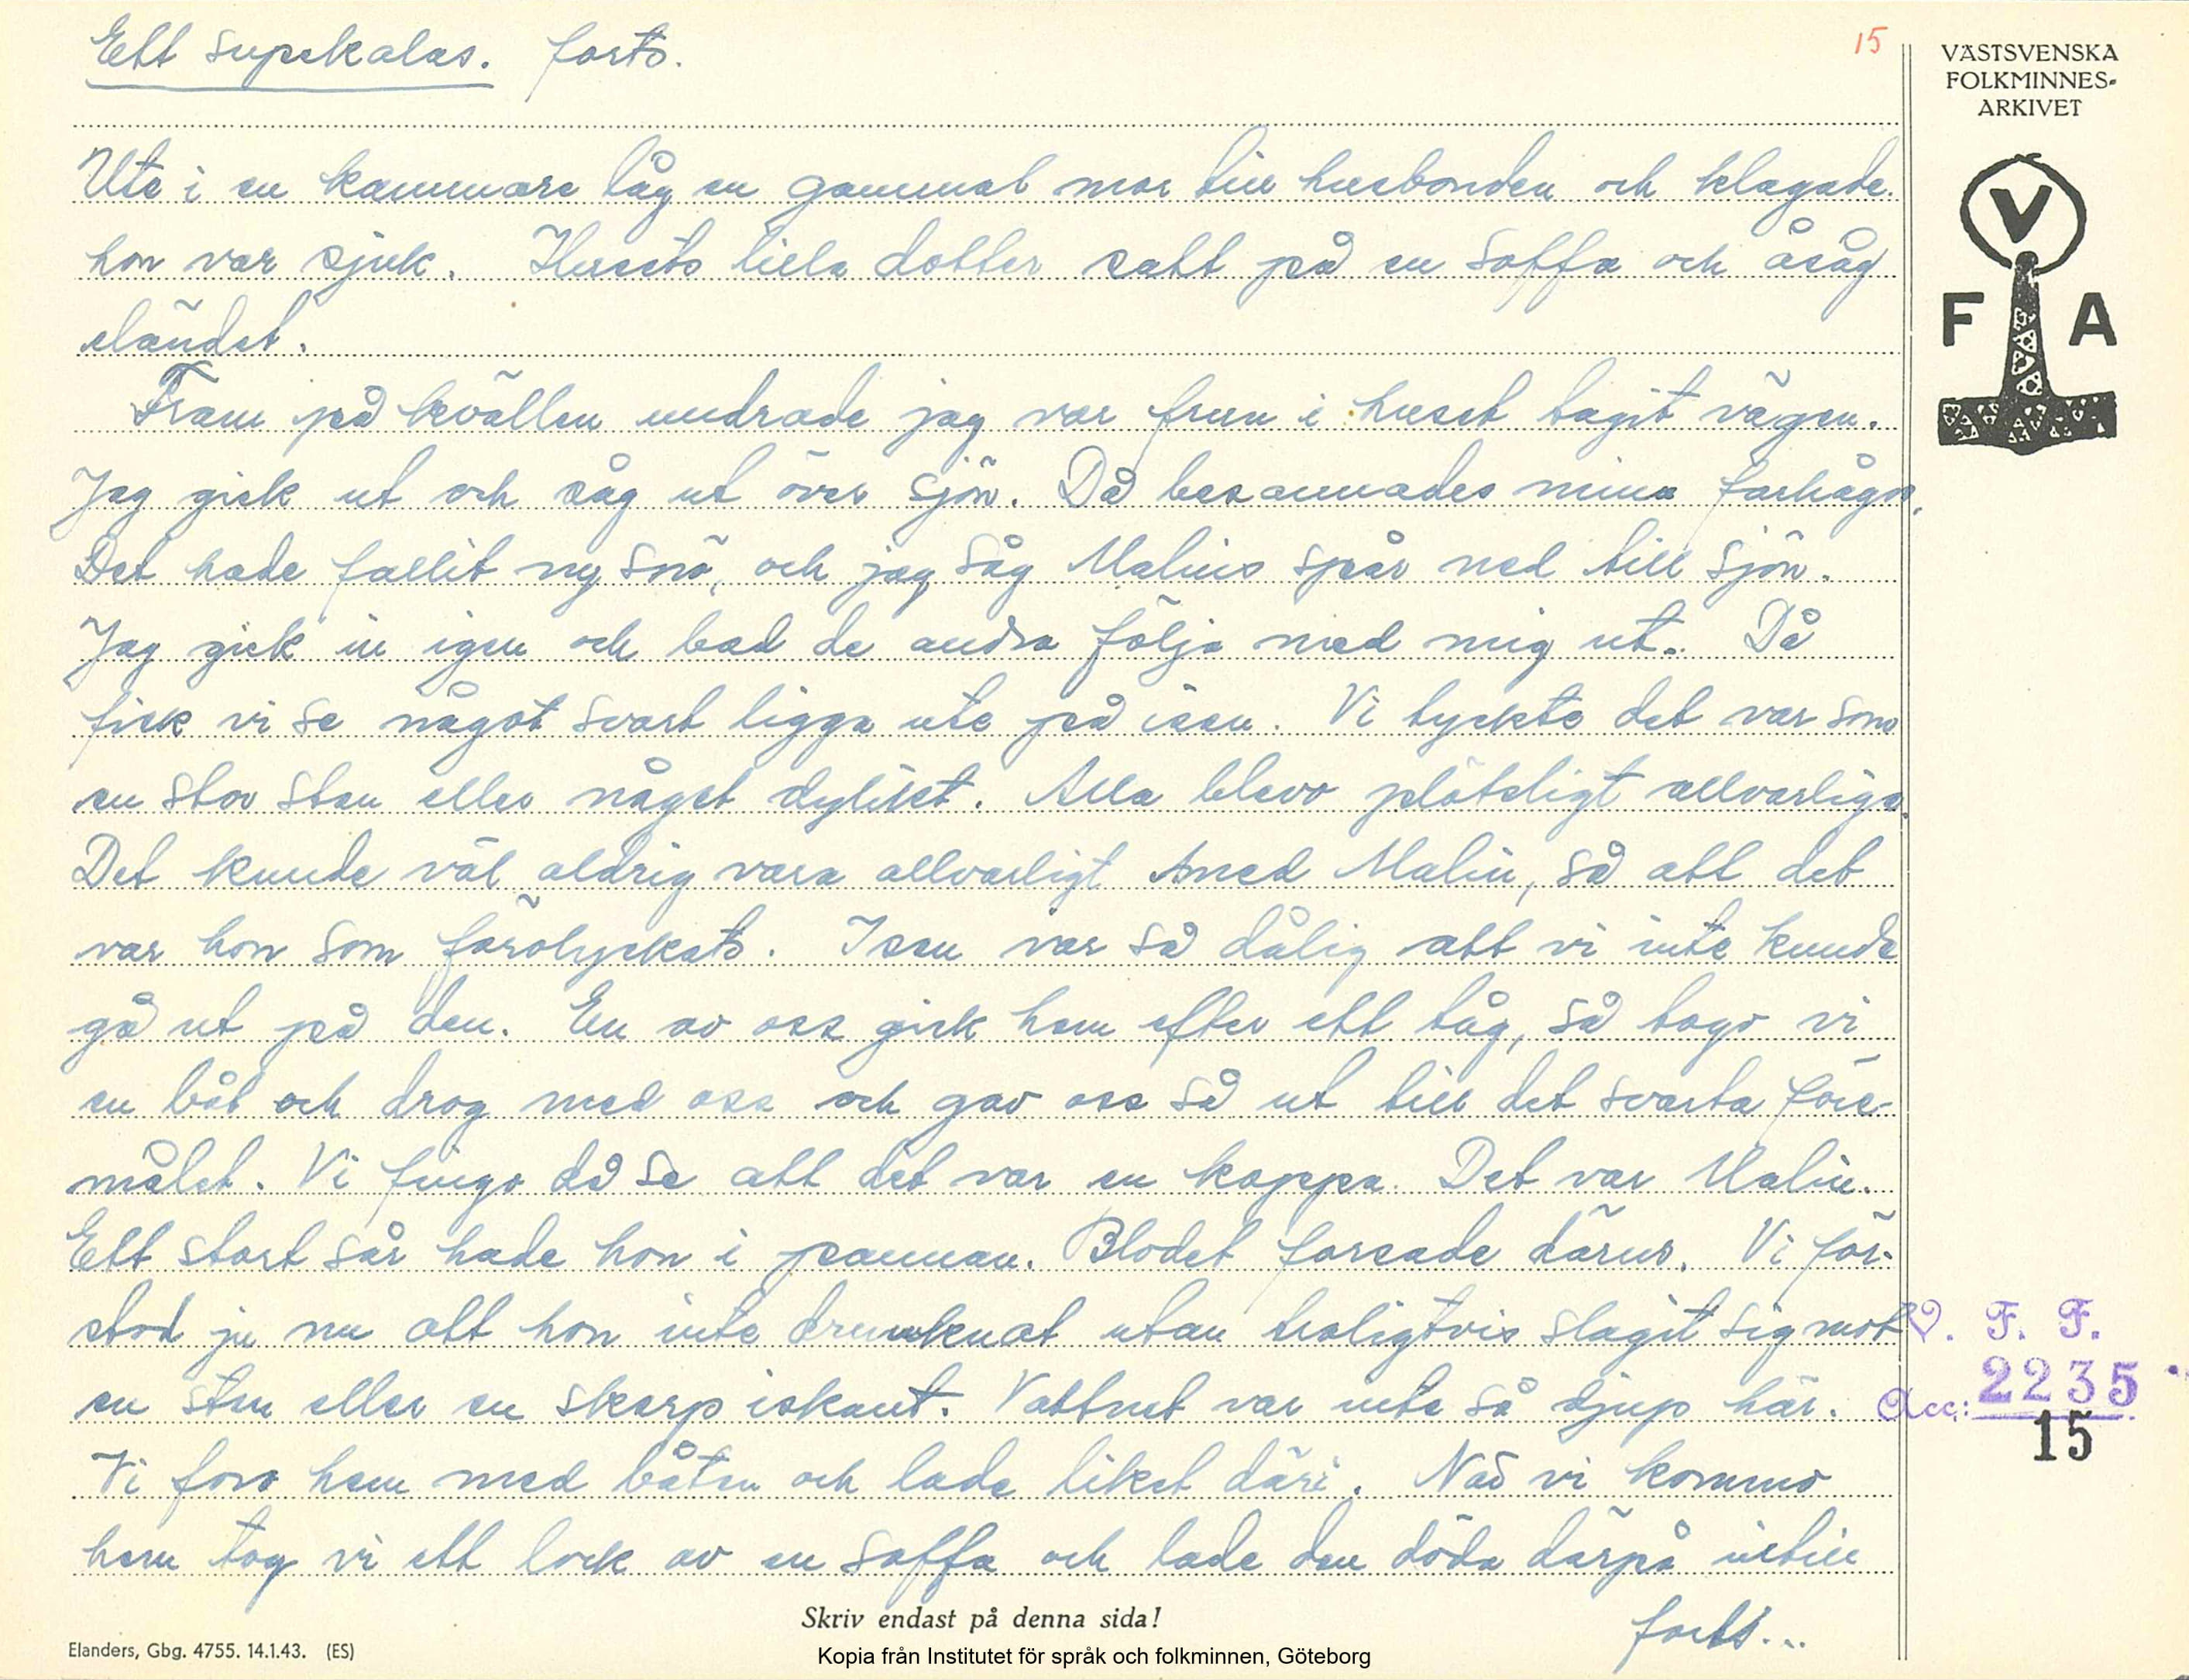 Ett supekalas. forts.
15
VÄSTSVENSKA
FOLKMINNES-
ARKIVET
V
F A
Ute i en kammare låg en gammal mor till husbonden och klagade.
hon var sjuk. Husets lilla dotter satt på en soffa och åsåg
eländet.
Fram på kvällen undrade jag var frun i huset tagit vägen.
Jag gick ut och såg ut över sjön. Då besannades mina farhågor.
Det hade fallit ny snö, och jag såg Malins spår ned till sjön.
Jag gick in igen och bad de andra följa med mig ut. Då
fick vi se något svart ligga ute på isen. Vi tyckte det var som
en stor sten eller något dylikt. Alla blevo plötsligt allvarliga.
Det kunde väl aldrig vara allvarligt med Malin, så att det
var hon som förolyckats. Isen var så dålig att vi inte kunde
gå ut på den. En av oss gick hem efter ett tåg, så togo vi
en båt och drog med oss och gav oss så ut till det svarta före-
målet. Vi fingo då se att det var en kappa. Det var Malin.
Ett stort sår hade hon i pannan. Blodet forsade därur. Vi för-
stod ju nu att hon inte drunknat utan troligtvis slagit sig mot
en sten eller en skarp iskant. Vattnet var inte så djup här.
Vi foro hem med båten och lade liket däri. När vi kommo
hem tog vi ett lock av en soffa och lade den döda därpå intill
forts...
V. F. F.
Acc: 2235
15
Skriv endast på denna sida!
Elanders, Gbg. 4755. 14.1.43. (ES)
Kopia från Institutet för språk och folkminnen, Göteborg